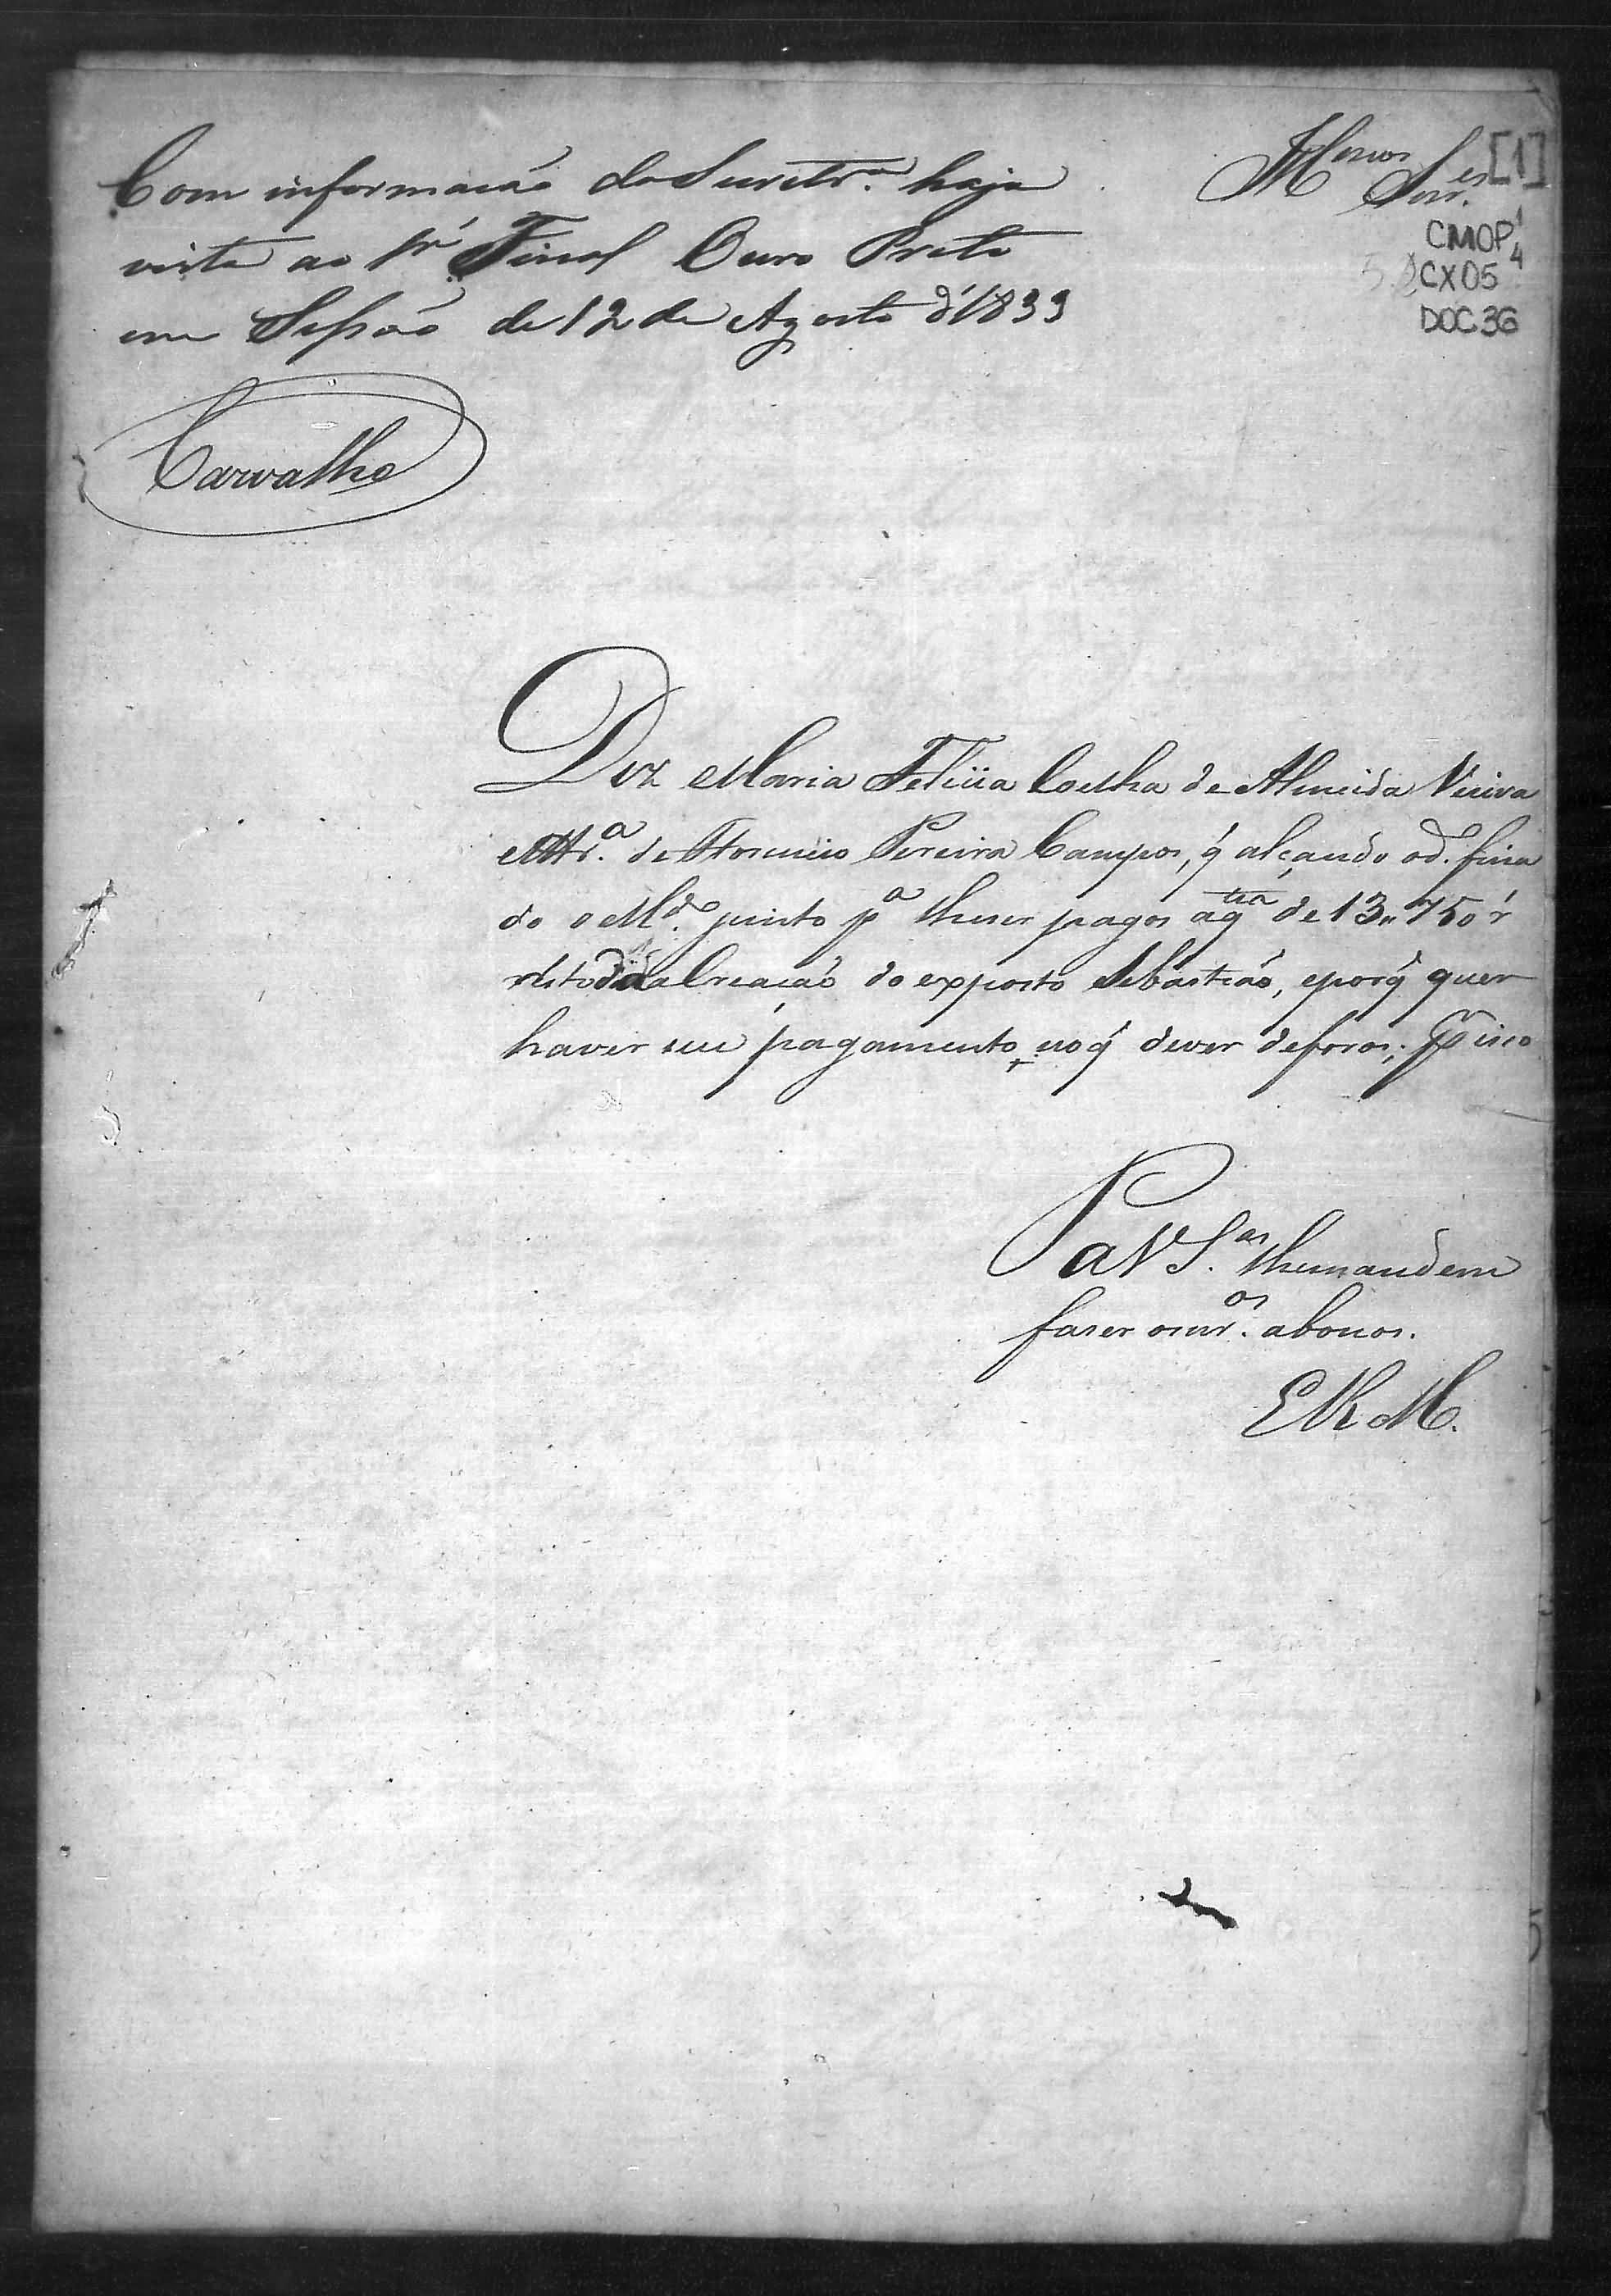 Com informacaõ do Secretr.ᵃ haja
vista ao Pr Fiscal Ouro Preto
em Sessaõ de 12 de Agosto d'1833
Carvalho
Illmos Senr.es
[1]
CMOP
CX05
DOC36
Diz Maria Felicia Coelha de Almeida Viuva
de Florencio Pereira Campos, q̃ alcando o d. fina
do o M.do junto pa lheser pagos a qtia de 13"750 r
resto da Creacaõ do exposto Sebastiaõ, eporq̃ quer
haver seu pagamento no q̃ dever deforos; P isso
P a V S.as lhemandem
faser os abonos.
E R M.